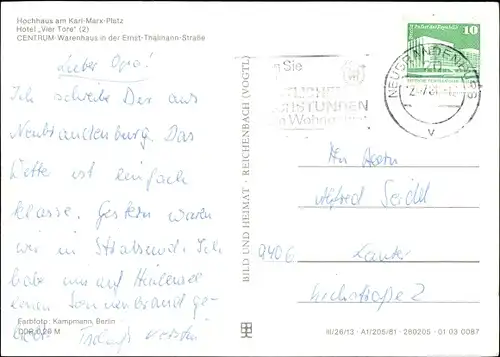 Hochhaus am Karl-Marx-Platz
Hotel „Vier Tore" (2)
CENTRUM-Warenhaus in der Ernst-Thälmann-Straße
Lieber Opa!
Ich schreibe Dir aus
Neubrandenburg. Das
Wetter ist einfach
klasse. Gestern waren
wir in Stralsund. Ich
habe mir auf Hiddensee
einen Sonnenbrand ge-
holt.
Farbfoto: Kampmann, Berlin
DDR 0,20 M
BILD UND HEIMAT · REICHENBACH (VOGTL)
Sie
STUNDEN
NEUBRANDENBURG
10
Herrn
Alfred Seidel
9406
Lauter
III/26/13 · A1/205/81 · 280205 · 01 03 0087